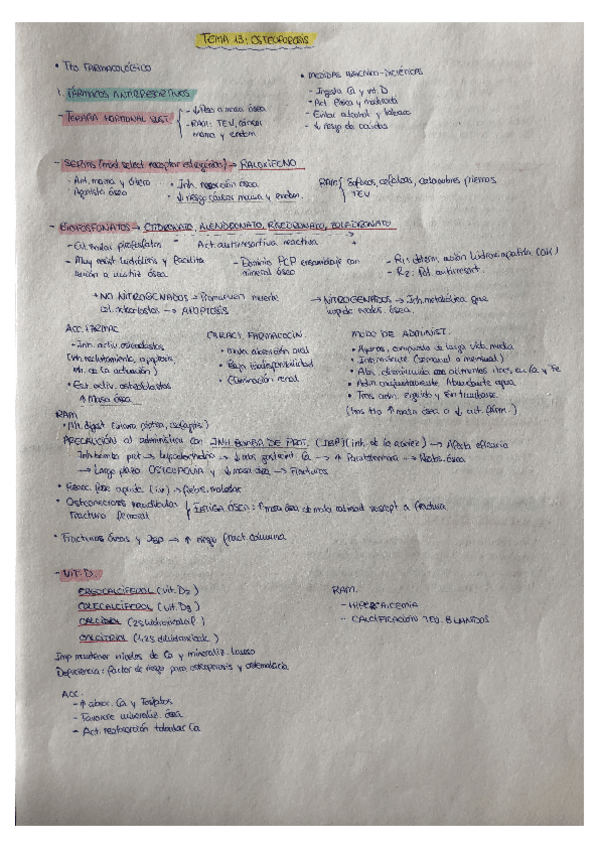 TEMA 13: OSTEOPOROSIS
• Tto FARMACOLÓGICO
• MEDIDAS HIGIÉNICO-DIETÉTICAS
- Ingesta Ca y vit. D
- Act. física y moderada
- Evitar alcohol y tabaco
- ↓ riesgo de caídas
1. FÁRMACOS ANTIRRESORTIVOS
- TERAPIA HORMONAL SUST.
- ↓ masa ósea
- RAM: TEV, cáncer
mama y endom
- SERMs (mod. select receptor estrogénico) → RALOXIFENO
· Ant. mama y útero
Agonista óseo
· Inh. resorción ósea
· ↓ riesgo cáncer mama y endom.
RAM Sofocos, cefaleas, calambres piernas
TEV
- BIFOSFONATOS → ETIDRONATO, ALENDRONATO, RISEDRONATO, ZOLEDRONATO
- Muy resist hidrólisis y facilita
unión a matriz ósea
Act. antirresortiva
- Dominio PCP ensamblaje con
mineral óseo
- R1: determ. unión hidroxiapatita (OH)
- R2: Pot. antirresort.
→ NO NITROGENADOS → Promueven muerte
cel. osteoclastos → APOPTOSIS
→ NITROGENADOS → Inh. metabólica que
impide resor. ósea.
ACC. FARMAC
- Inh. activ osteoclastos
(inh. reclutamiento, apoptosis,
inh. de la activación)
- Est. activ. osteoblastos
↑ Masa ósea
CARACT. FARMACOCIN.
• mala absorción oral
• Baja biodisponibilidad
• Eliminación renal
MODO DE ADMINIST.
• Ayunas, compuesto de larga vida media
• Intermitente (semanal o mensual)
• Abs. disminuida con alimentos ricos en Ca y Fe
• Adm conjuntamente Abundante agua
• Tras adm. erguido y sin tumbarse.
(Tras tto ↑ masa ósea
RAM
• Alt. digest
PRECAUCIÓN al administrar con INH BOMBA DE PROT. (IBP) (inh. de la acidez) → Afecta eficacia
Inh bomba prot → hipoclorhidria → ↓ abs gástrica Ca → ↑ Parathormona → Reabs. ósea
→ Largo plazo OSTEOPENIA y ↓ masa ósea → Fracturas
• Reacc. fase aguda (iv) → fiebre, malestar
• Osteonecrosis mandibular
Fractura femoral
FATIGA ÓSEA: ↑ masa ósea de mala calidad suscept a fractura
• Fracturas óseas y IBP → ↑ riesgo fract. columna
- VIT. D.
ERGOCALCIFEROL (vit. D2)
COLECALCIFEROL (vit. D3)
CALCIDIOL (25 hidroxicalcif)
CALCITRIOL (1,25 dihidroxicalc)
RAM.
- HIPERCALCEMIA
- CALCIFICACIÓN TEJ. BLANDOS
Imp mantener niveles de Ca y mineraliz. hueso
Deficiencia: factor de riesgo para osteoporosis y osteomalacia
ACC.
- ↑ absoc. Ca y fosfatos
- Favorece mineraliz. ósea
- Act. reabsorción tubular Ca